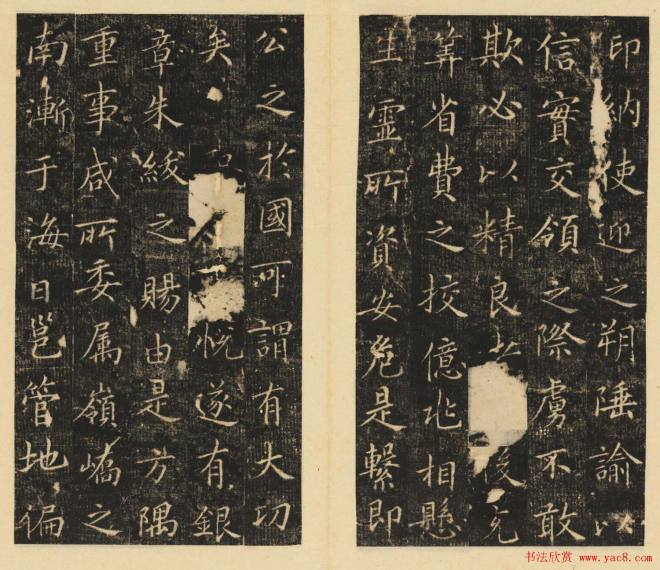 印納使迎之朔陲諭以
信實交領之際虜不敢
欺必以精良者後充
筭省費之挍億兆相懸
生靈所資安危是繫即
公之於國可謂有大功
矣悅遂有銀
章朱紱之賜由是方隅
重事咸所委属嶺嶠之
南漸于海日邕管地偏
书法欣赏 www.yac8.com